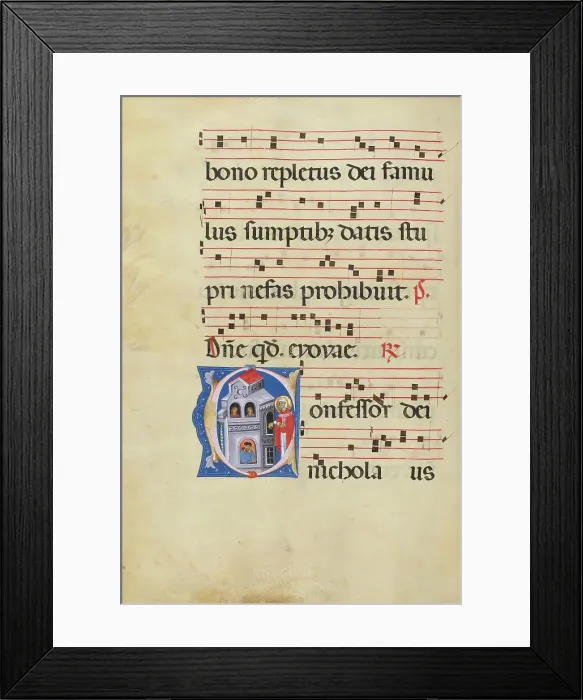 bono repletus dei famu
lus sumptibꝫ datis stu
pri nefas prohibuit. p̃.
Dñe qd̃. evovae. ℟
Confessor dei
nichola us